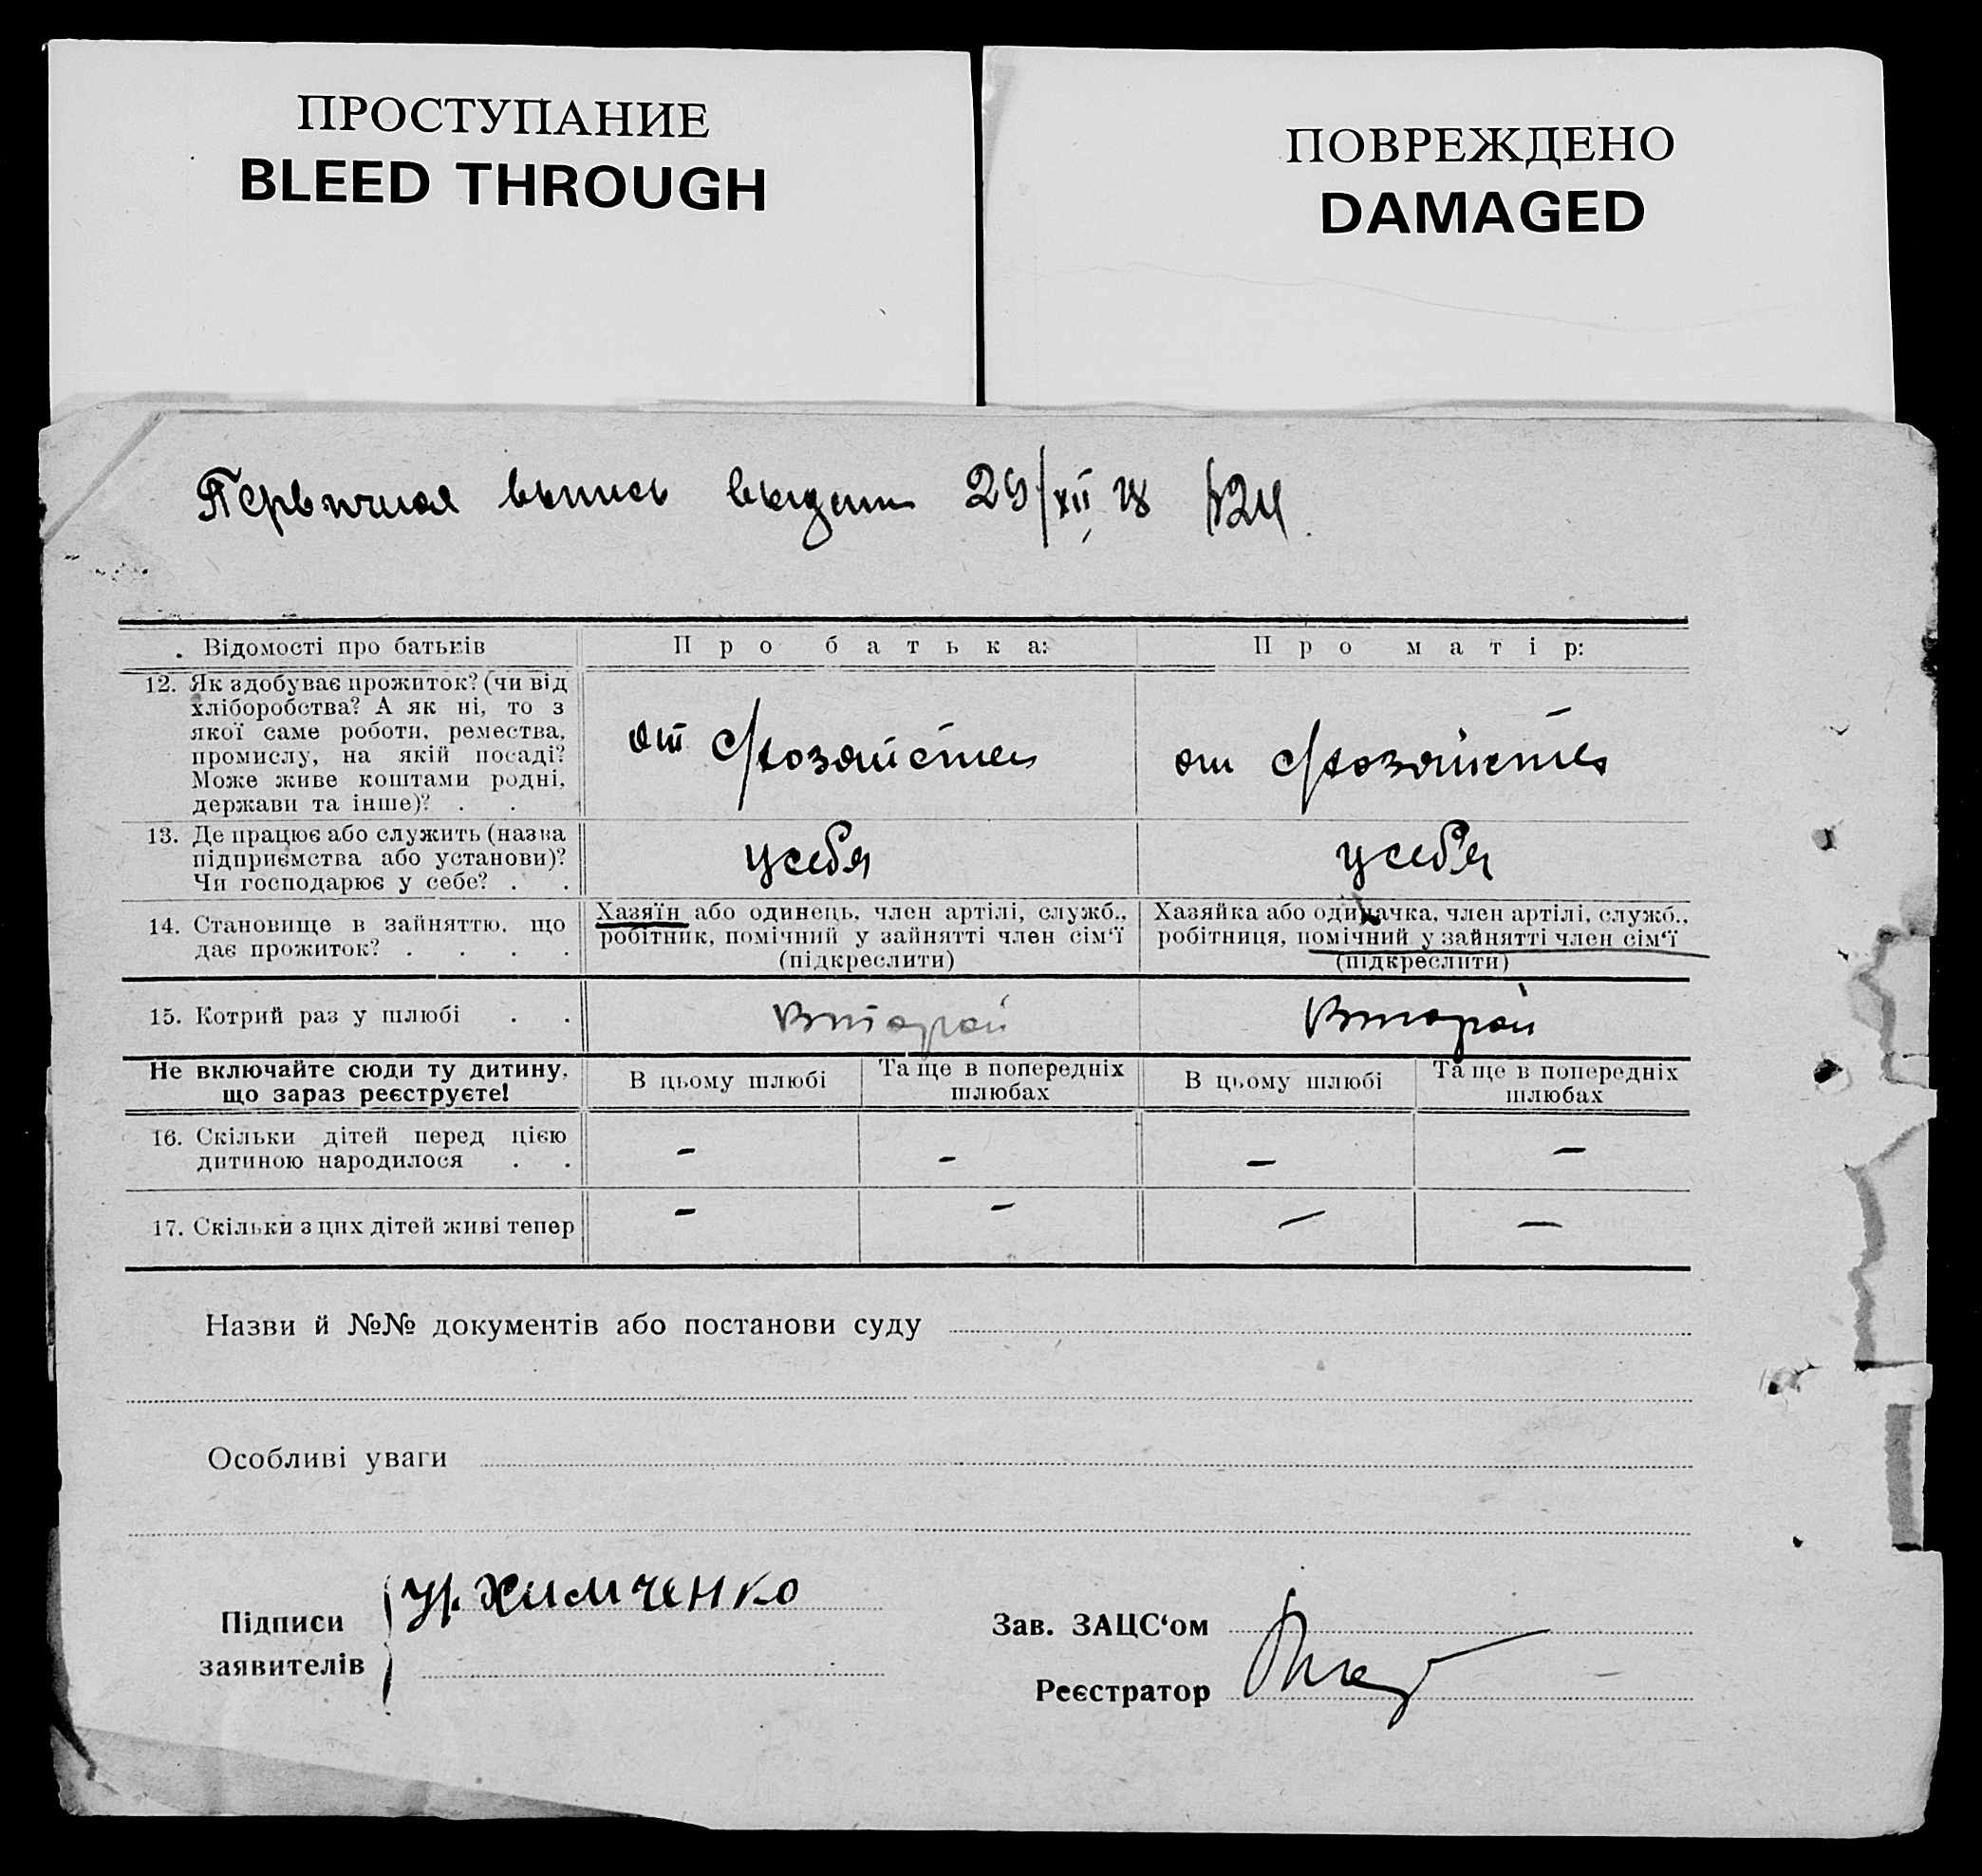 ПРОСТУПАНИЕ
BLEED THROUGH
ПОВРЕЖДЕНО
DAMAGED
Первичная выпись выдана 29/XII 28 №24
Відомості про батьків
Про батька:
Про матір:
12. Як здобуває прожиток? (чи від
хліборобства? А як ні, то з
якої саме роботи, ремества,
промислу, на якій посаді?
Може живе коштами родні,
держави та інше)? . .
от с/хозяйства
от с/хозяйства
13. Де працює або служить (назва
підприємства або установи)?
Чи господарює у себе? . .
у себя
у себя
14. Становище в зайняттю, що
дає прожиток? . . . .
Хазяїн або одинець, член артілі, служб.,
робітник, помічний у зайнятті член сім‘ї
(підкреслити)
Хазяйка або одиначка, член артілі, служб.,
робітниця, помічний у зайнятті член сім‘ї
(підкреслити)
15. Котрий раз у шлюбі . .
Второй
Второй
Не включайте сюди ту дитину,
що зараз реєструєте!
В цьому шлюбі
Та ще в попередніх
шлюбах
В цьому шлюбі
Та ще в попередніх
шлюбах
16. Скільки дітей перед цією
дитиною народилося . .
– – – –
17. Скільки з цих дітей живі тепер
– – – –
Назви й №№ документів або постанови суду
Особливі уваги
Підписи
заявителів
Химченко
Зав. ЗАЦС‘ом
Реєстратор